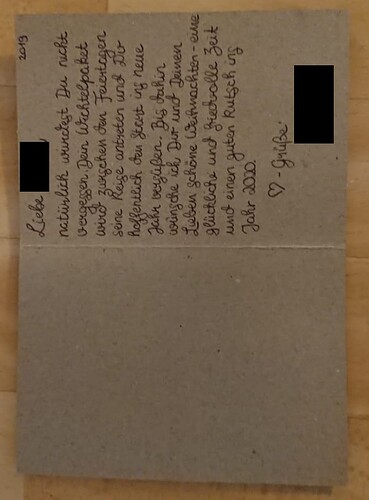 2019
Liebe
natürlich wurdest Du nicht
vergessen. Dein Wichtelpaket
wird zwischen den Feiertagen
seine Reise antreten und Dir
hoffentlich den Start ins neue
Jahr versüßen. Bis dahin
wünsche ich Dir und Deinen
Lieben schöne Weihnachten - eine
glückliche und friedvolle Zeit
und einen guten Rutsch ins
Jahr 2020.
♡ - Grüße